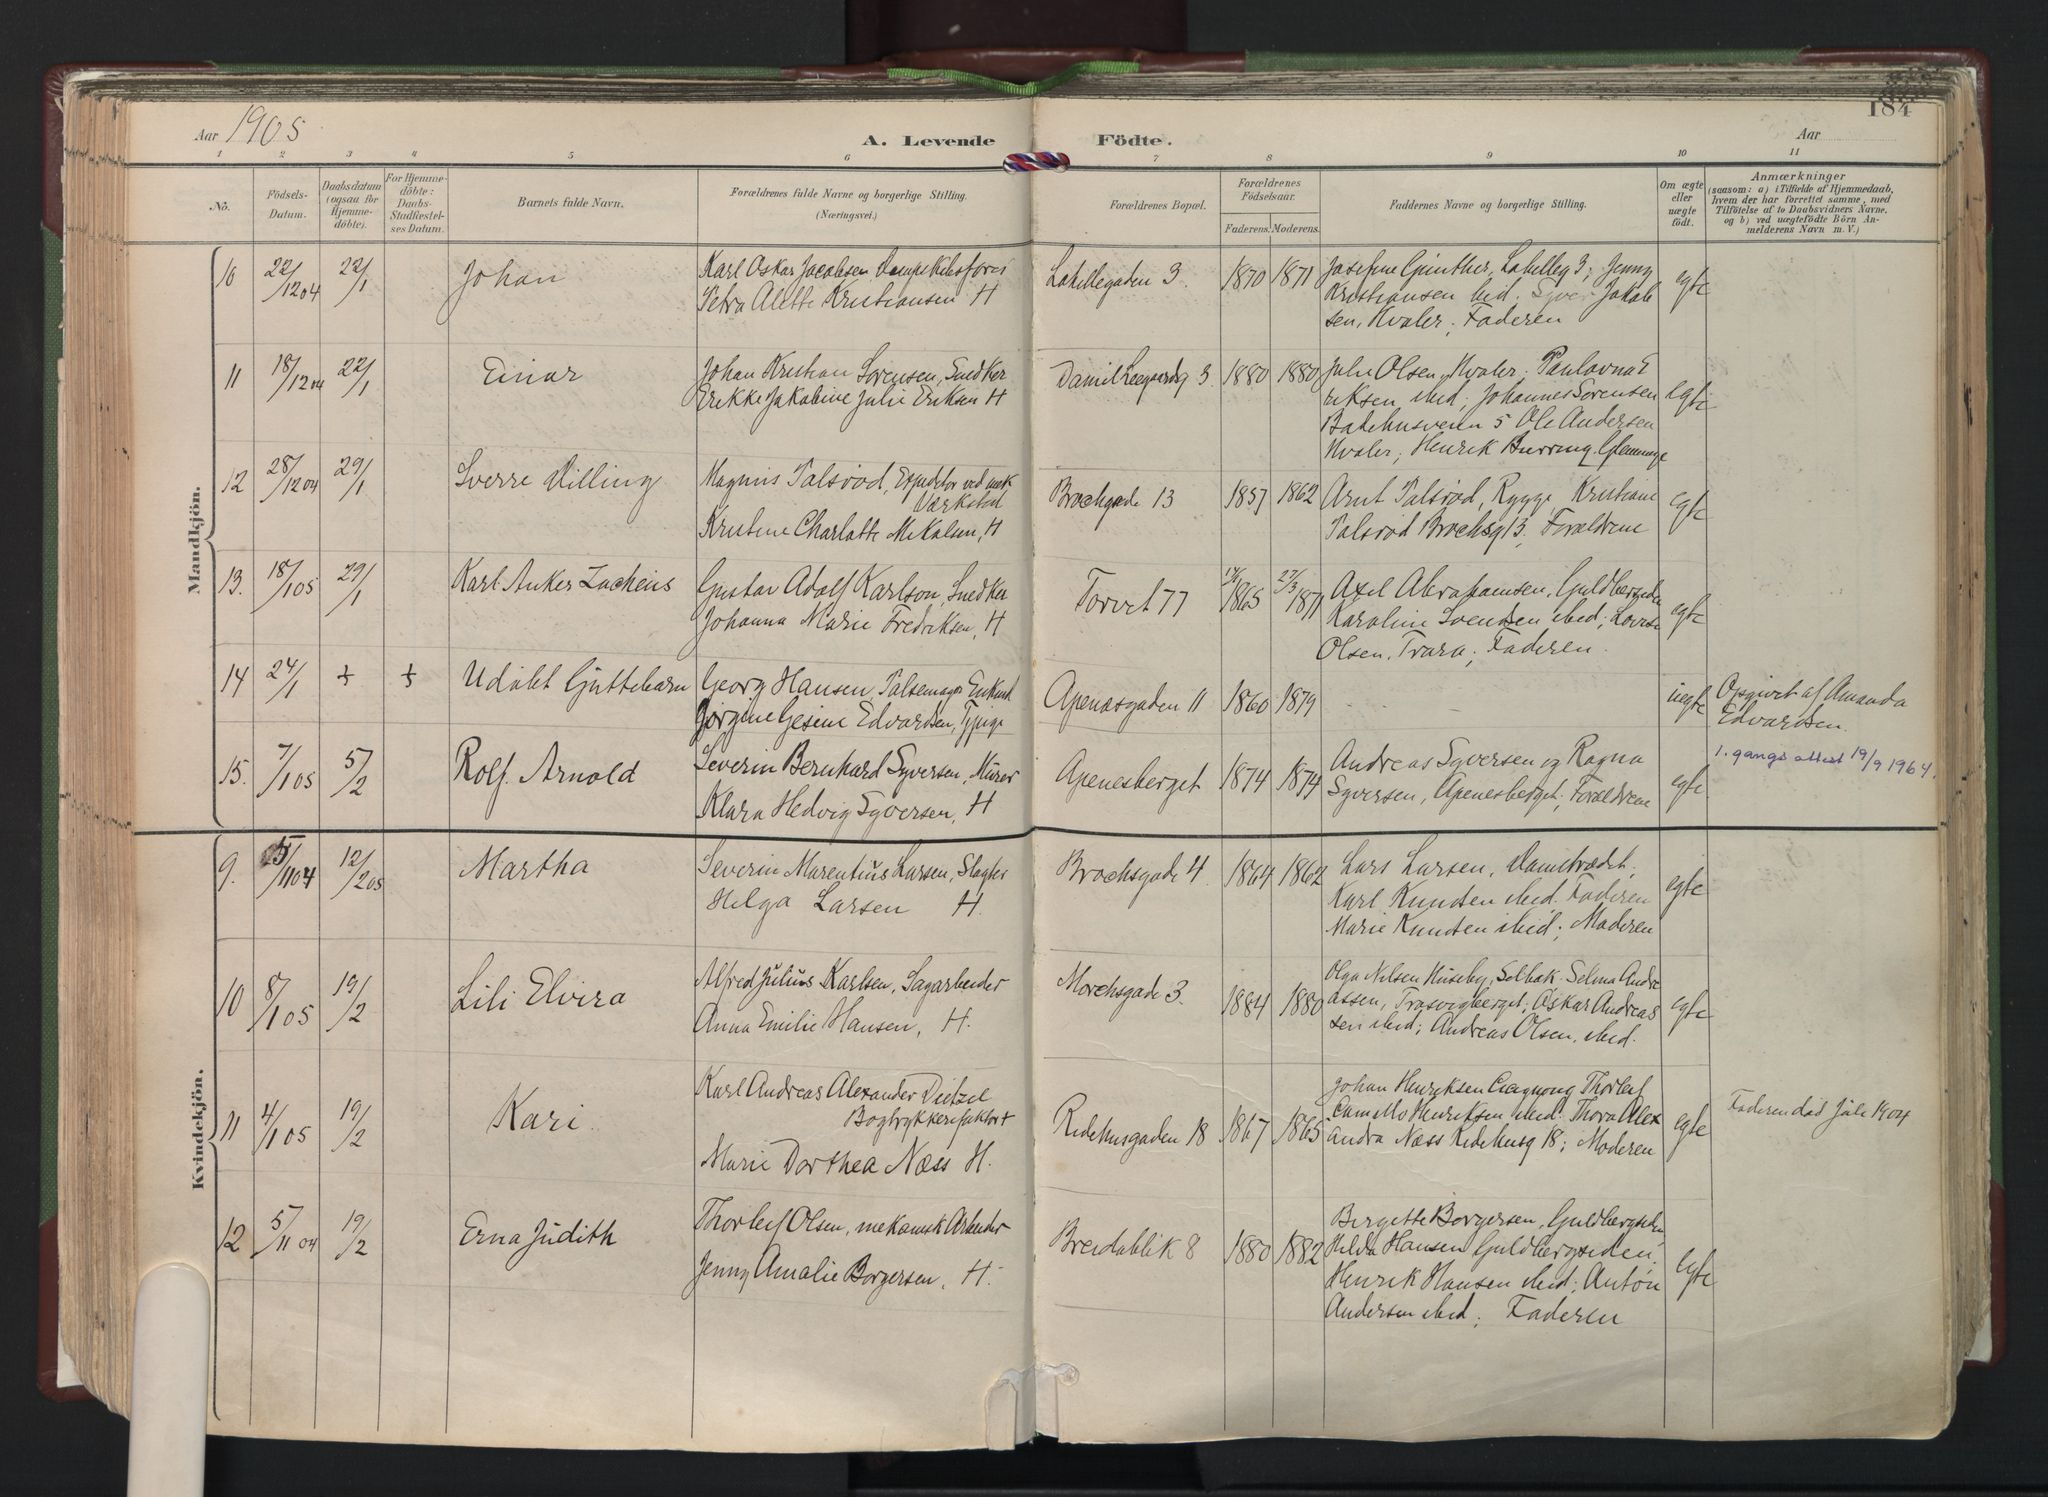 184
Aar 1905
A. Levende Födte.
Aar
1 2 3 4 5 6 7 8 9 10 11
No.
Födsels-
Datum.
Daabsdatum
(ogsaa for
Hjemme-
döbte).
For Hjemme-
döbte:
Daabs-
Stadfæstel-
ses Datum.
Barnets fulde Navn.
Forældrenes fulde Navne og borgerlige Stilling.
(Næringsvei.)
Forældrenes Bopæl.
Forældrenes
Födselsaar.
Faderens. Moderens.
Faddernes Navne og borgerlige Stilling.
Om ægte
eller
uægte
födt.
Anmærkninger
(saasom: a) i Tilfælde af Hjemmedaab,
hvem der har forrettet samme, med
Tilföielse af to Daabsvidners Navne,
og b) ved uægtefödte Börn An-
melderens Navn m. V.)
Mandkjön.
10 22/12 04 22/1 Johan
Karl Oskar Jacobsen
Petra Alette Kristiansen H
Labellegaden 3. 1870 1871
Josefine Günther, Labelleg 3; Jenny
Kristiansen ibid. Syver Jakob
sen, Hvaler; Faderen
egte
11 18/12 04 22/1 Einar
Johan Kristian Sørensen, Snedker
Erikke Jakobine Julie Eriksen H
Daniel Leegaardsg 3. 1880 1880
Julie Olsen, Hvaler. Paulovna E
riksen ibid; Johannes Sørensen
Badehusveien 5 Ole Andersen
Hvaler; Henrik
egte
12 28/12 04 29/1 Sverre Villing
Magnus Talsrød, Expeditør ved mek
Værksted
Kristine Charlotte Mikalsen, H
Brochsgade 13 1857 1862
Arnt Talsrød, Rygge, Kristiane
Talsrød Brochsg 13, Forældrene
egte
13. 18/1 05 29/1 Karl Anker Zacheus
Gustav Adolf Karlson, Snedker
Johanna Marie Fredriksen, H
Torvet 77 1865 27/3 1871
Axel Abrahamsen, Guldbergsiden
Karoline Svendsen ibid; Lovise
Olsen, Trara; Faderen.
egte
14 24/1 + + Udøbt Guttebarn
Georg Hansen, Pølsemager Enkem
Jørgine Gesine Edvardsen, Tjpige
Apenæsgaden 11 1860 1879
uegte
Opgivet af Amanda
Edvardsen.
15. 7/1 05 5/2 Rolf Arnold
Severin Bernhard Syversen, Murer
Klara Hedvig Syversen, H
Apenesberget 1874 1874
Andreas Syversen og Ragna
Syversen, Apenesberget; Forældrene
egte
1. gangs attest 19/9 1964.
Kvindekjön.
9. 5/11 04 12/2 05 Martha
Severin Marentius Larsen, Slagter
Helga Larsen H.
Brochsgade 4. 1864 1862
Lars Larsen, Damstrædet;
Karl Knudsen ibid. Faderen
Marie Knudsen ibid; Moderen
egte
10 8/1 05 19/2 Lili Elvira
Alfred Julius Karlsen, Sagarbeider
Anna Emilie Hansen, H.
Morchsgade 3. 1884 1880
Olga Nilsen Huseby, Selbak; Selma Andre
assen, Trosvigberget; Oskar Andreas
sen ibid; Andreas Olsen, ibid.
egte
11 4/1 05 19/2 Kari.
Karl Andreas Alexander Dietzel
Bogtrykkerifaktor +
Marie Dorthea Næss H.
Ridehusgaden 18 1867 1865
Johan Henriksen Thorleif
Camillo Henriksen ibid. Thora Alex
andra Næss Ridehusg 18; Moderen
egte
Faderen død Juli 1904
12 5/11 04 19/2 Erna Judith
Thorleif Olsen, mekanisk Arbeider
Jenny Amalie Borgersen, H.
Breidablik 8 1880 1882
Birgette Borgersen, Guldbergsiden
Hilda Hansen Guldbergsiden;
Henrik Hansen ibid; Anton
Andersen ibid; Faderen
egte